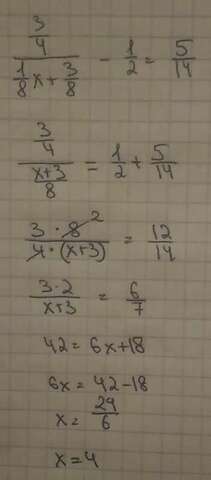 (3/4)/(1/8 x + 3/8) - 1/2 = 5/14
(3/4)/((x+3)/8) = 1/2 + 5/14
(3 · 8 2)/(4 · (x+3)) = 12/14
(3·2)/(x+3) = 6/7
42 = 6x+18
6x = 42-18
x = 24/6
x = 4